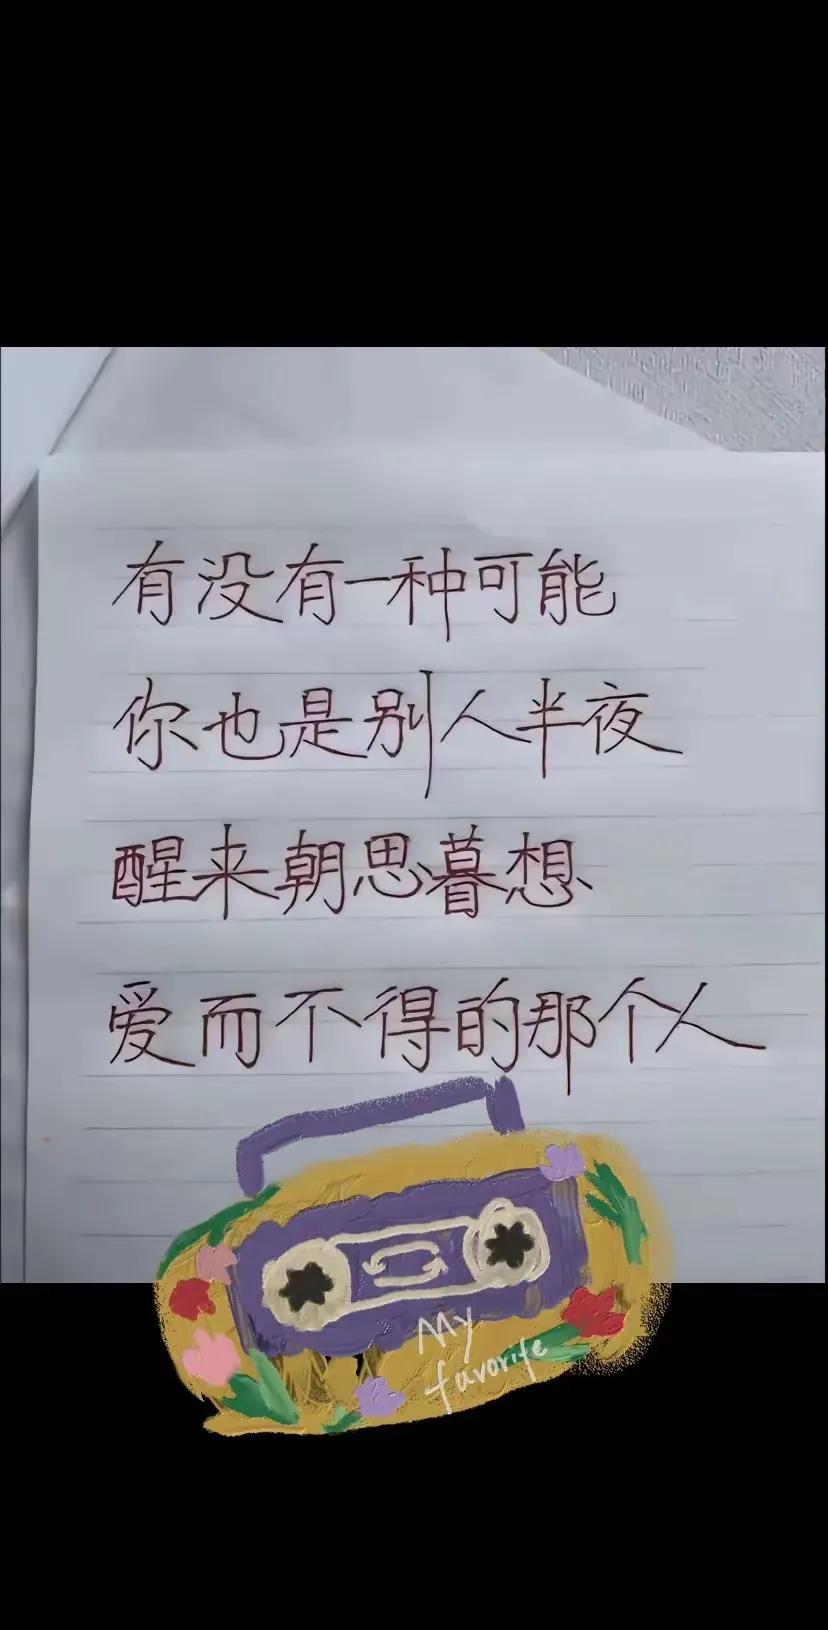 有没有一种可能
你也是别人半夜
醒来朝思暮想
爱而不得的那个人
My
favorite